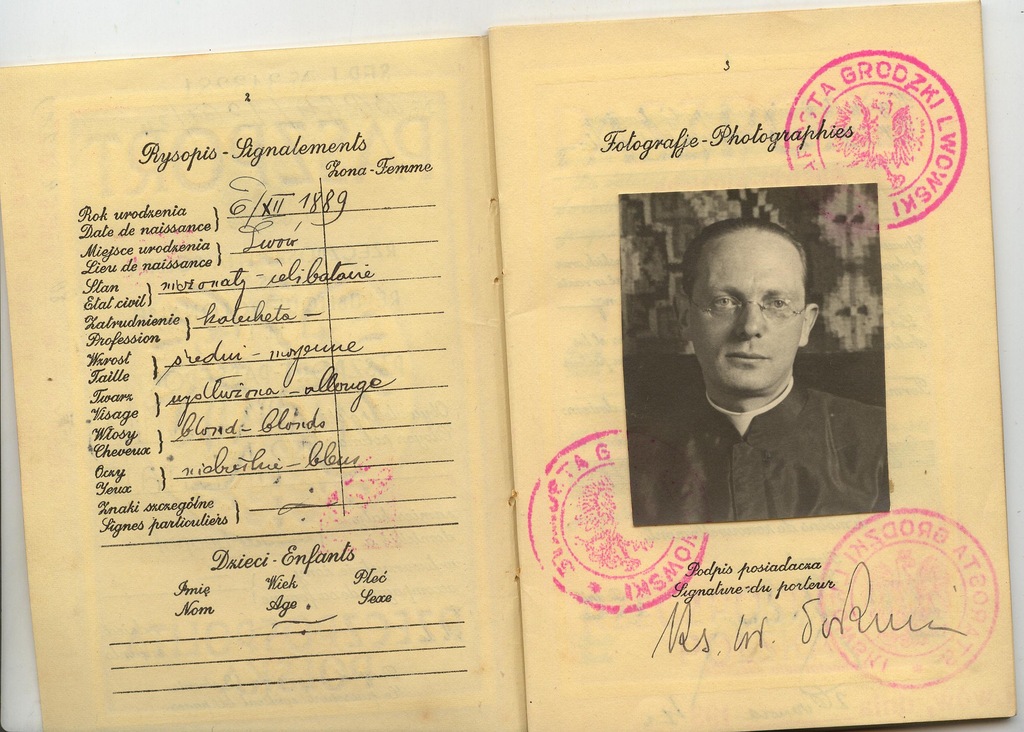 2
Rysopis - Signalements
Żona - Femme
Rok urodzenia
Date de naissance
6/XII 1889
Miejsce urodzenia
Lieu de naissance
Lwów
Stan
Etat civil
nieżonaty - célibataire
Zatrudnienie
Profession
katecheta -
Wzrost
Taille
średni - moyenne
Twarz
Visage
wydłużona - allongé
Włosy
Cheveux
blond - blonds
Oczy
Yeux
niebieskie - bleus
Znaki szczególne
Signes particuliers
Dzieci - Enfants
Imię Wiek Płeć
Nom Age Sexe
3
Fotografje - Photographies
STAROSTA GRODZKI LWOWSKI
STAROSTA G LWOWSKI
Podpis posiadacza
Signature du porteur
Ks. W.
STAROSTA GRODZKI